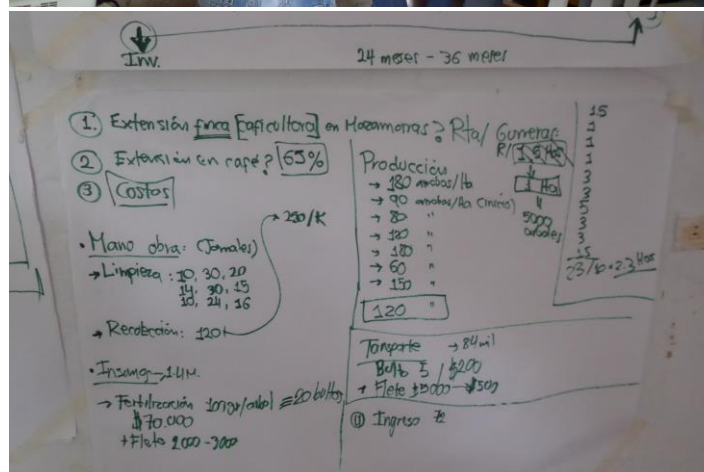 Inv.
24 meses - 36 meses
1. Extensión finca [caficultora] en Mazamorras? Rta/ Gumeras:
2 Extensión en café? 65%
3 Costos
→ 250/K
• Mano obra: (Jornales)
→ Limpieza: 10, 30, 20
14, 30, 15
10, 24, 16
→ Recolección: 120
• Insumo → 1.4M.
→ Fertilización 100gr/arbol = 20 bultos
$70.000
+ Flete 2000 - 3000
Producción
→ 180 arrobas/Ha
→ 90 arrobas/Ha (inicio)
→ 80 "
→ 120 "
→ 180 "
→ 60 "
→ 150 "
120 "
R/ 1.5 Has
1 Ha
5000
arboles
15
1
1
1
1
3
3
5
3
3
15
23/10 = 2.3 Has
Transporte → 84 mil
Bulto 5 / $200
+ Flete $5000 → $500
Ingreso